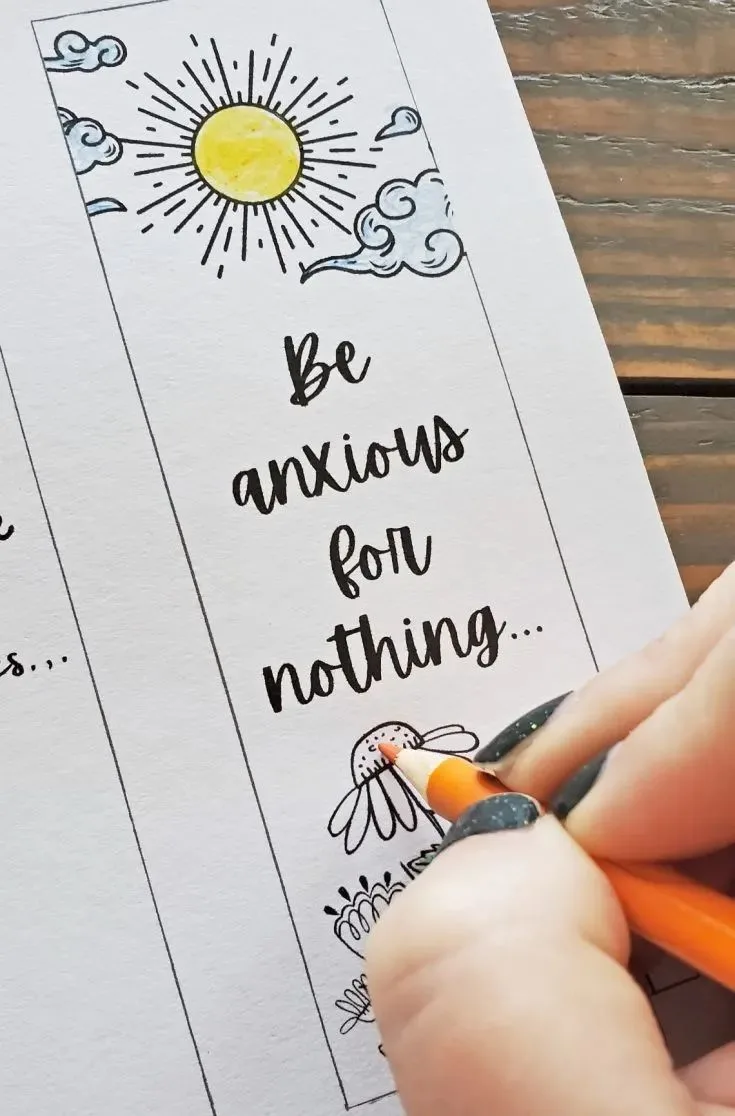 Be
anxious
for
nothing...
s...